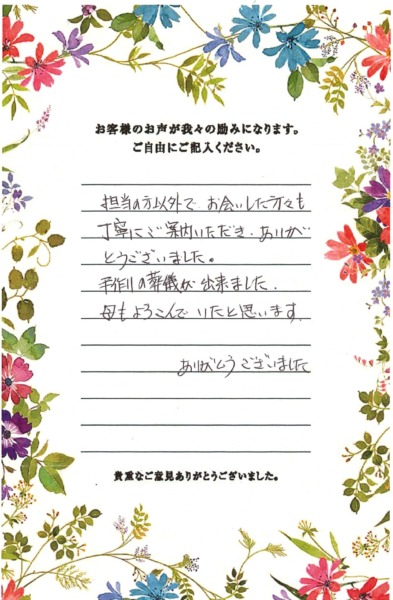 お客様のお声が我々の励みになります。
ご自由にご記入ください。
担当の方以外で、お会いした方々も
丁寧にご案内いただき、ありが
とうございました。
手作りの葬儀が出来ました。
母もよろこんでいたと思います。
ありがとうございました
貴重なご意見ありがとうございました。